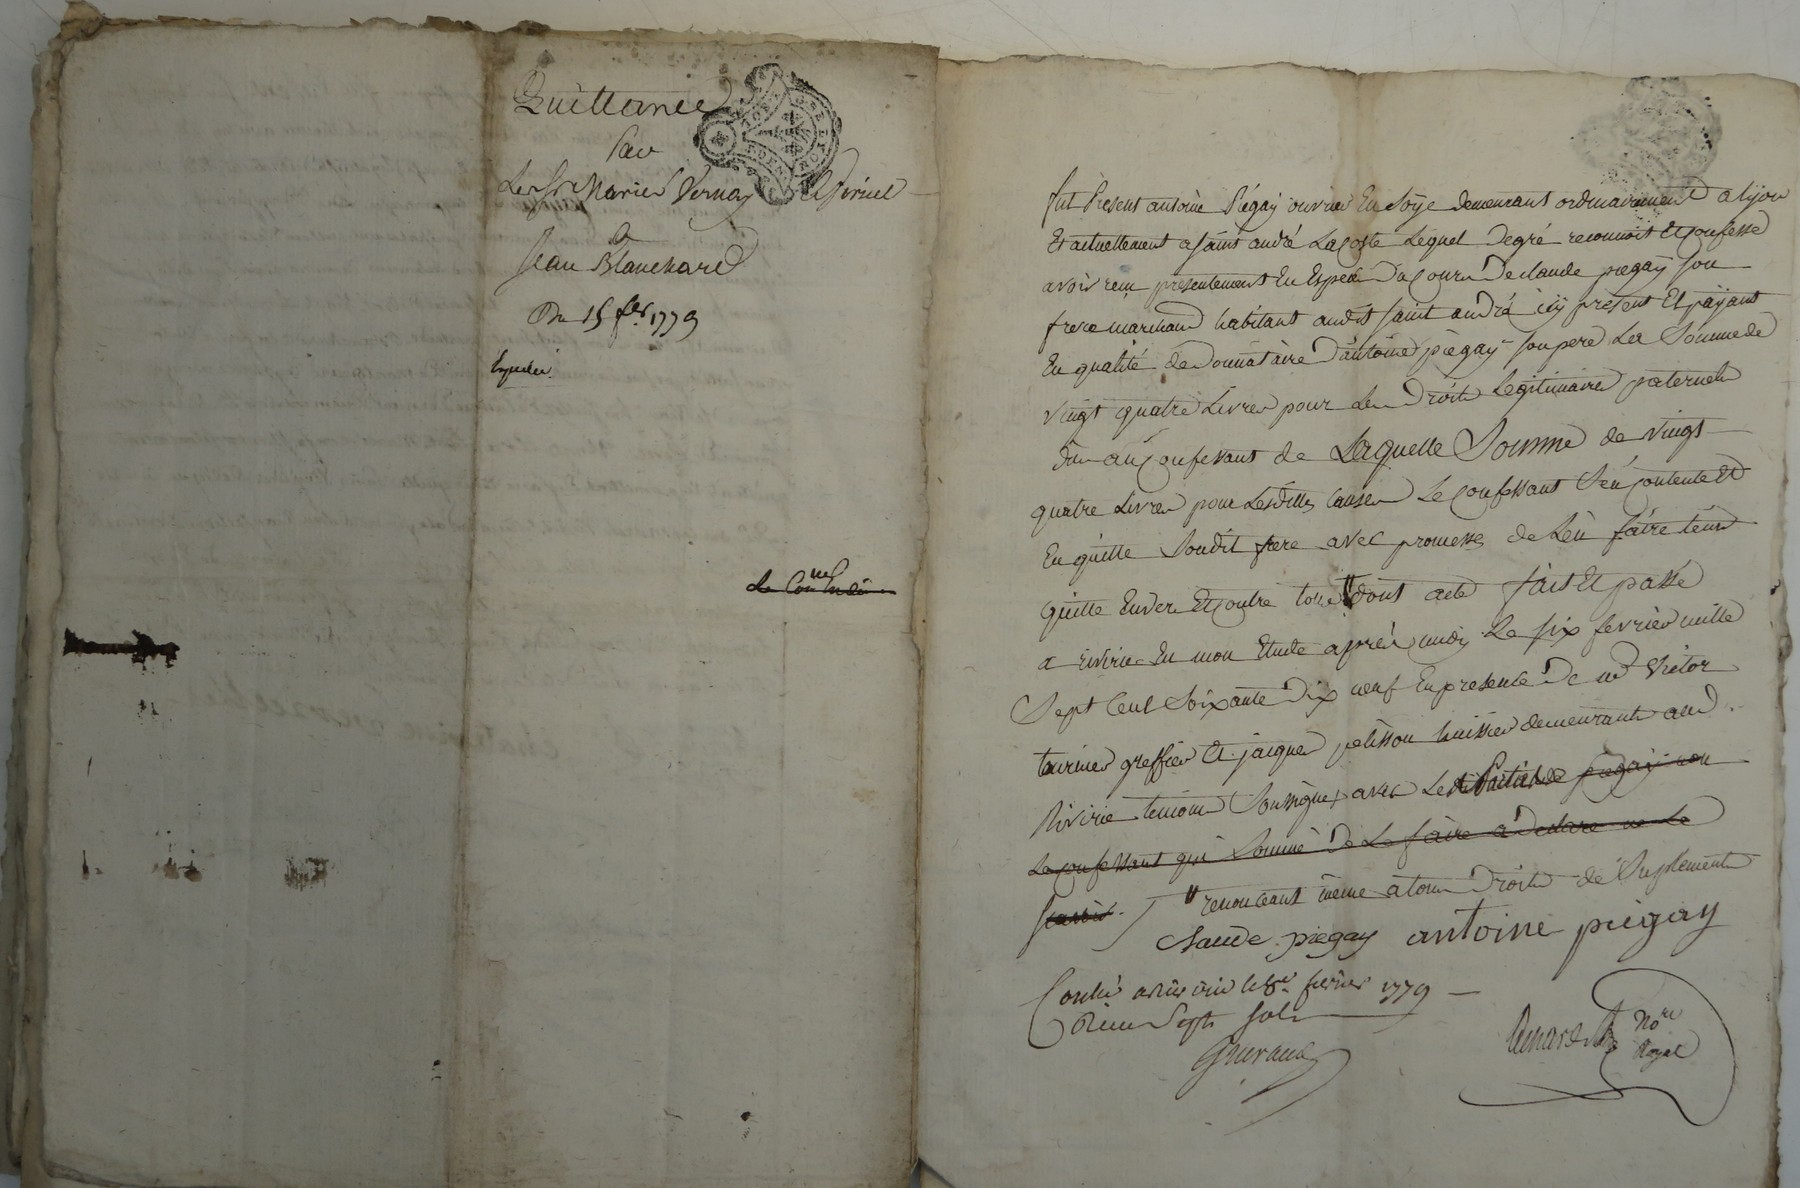 Quittance
Par
Les Sr Marie Vernay
A
Jean Blanchard
Du 15 fer 1779
Expediée
fut Present antoine Piégay ouvrier En Soÿe demeurant ordinairement a lÿon
Et actuellement a saint andré La Coste Lequel De gré reconnoit Et Confesse
avoir recu presentement En Especes Du Cours De claude piegaÿ son
frere marchand habitant audit saint andré icÿ present Et paÿant
En qualité de Donnataire D'antoine piegaÿ son pere La Somme de
vingt quatre Livres pour Les Droits Legitimaires paternels
dus au Confessant de Laquelle Somme de vingt
quatre Livres pour Lesdittes Causes Le Confessant S'en Contente Et
En quitte Sondit frere avec promesse de L'en faire tenir
quitte Envers Et Contre tous " dont acte fait Et passé
a riverie En mon Etude après midy Le six fevrier mille
Sept Cent Soixante Dix neuf En presence De Victor
greffier Et jacques pelisson huissier demeurants aud
Riverie temoins Soussignés avec Les Parties piegaÿ non
Le Confessant qui Sommé De Le faire a declare ne Le
scavoir. " renonceant même a tous Droits de Suplement
claude piegay antoine piegay
Conlé a Riverie le 8e fevrier 1779
Recu Sept Sols
Nore
Royal